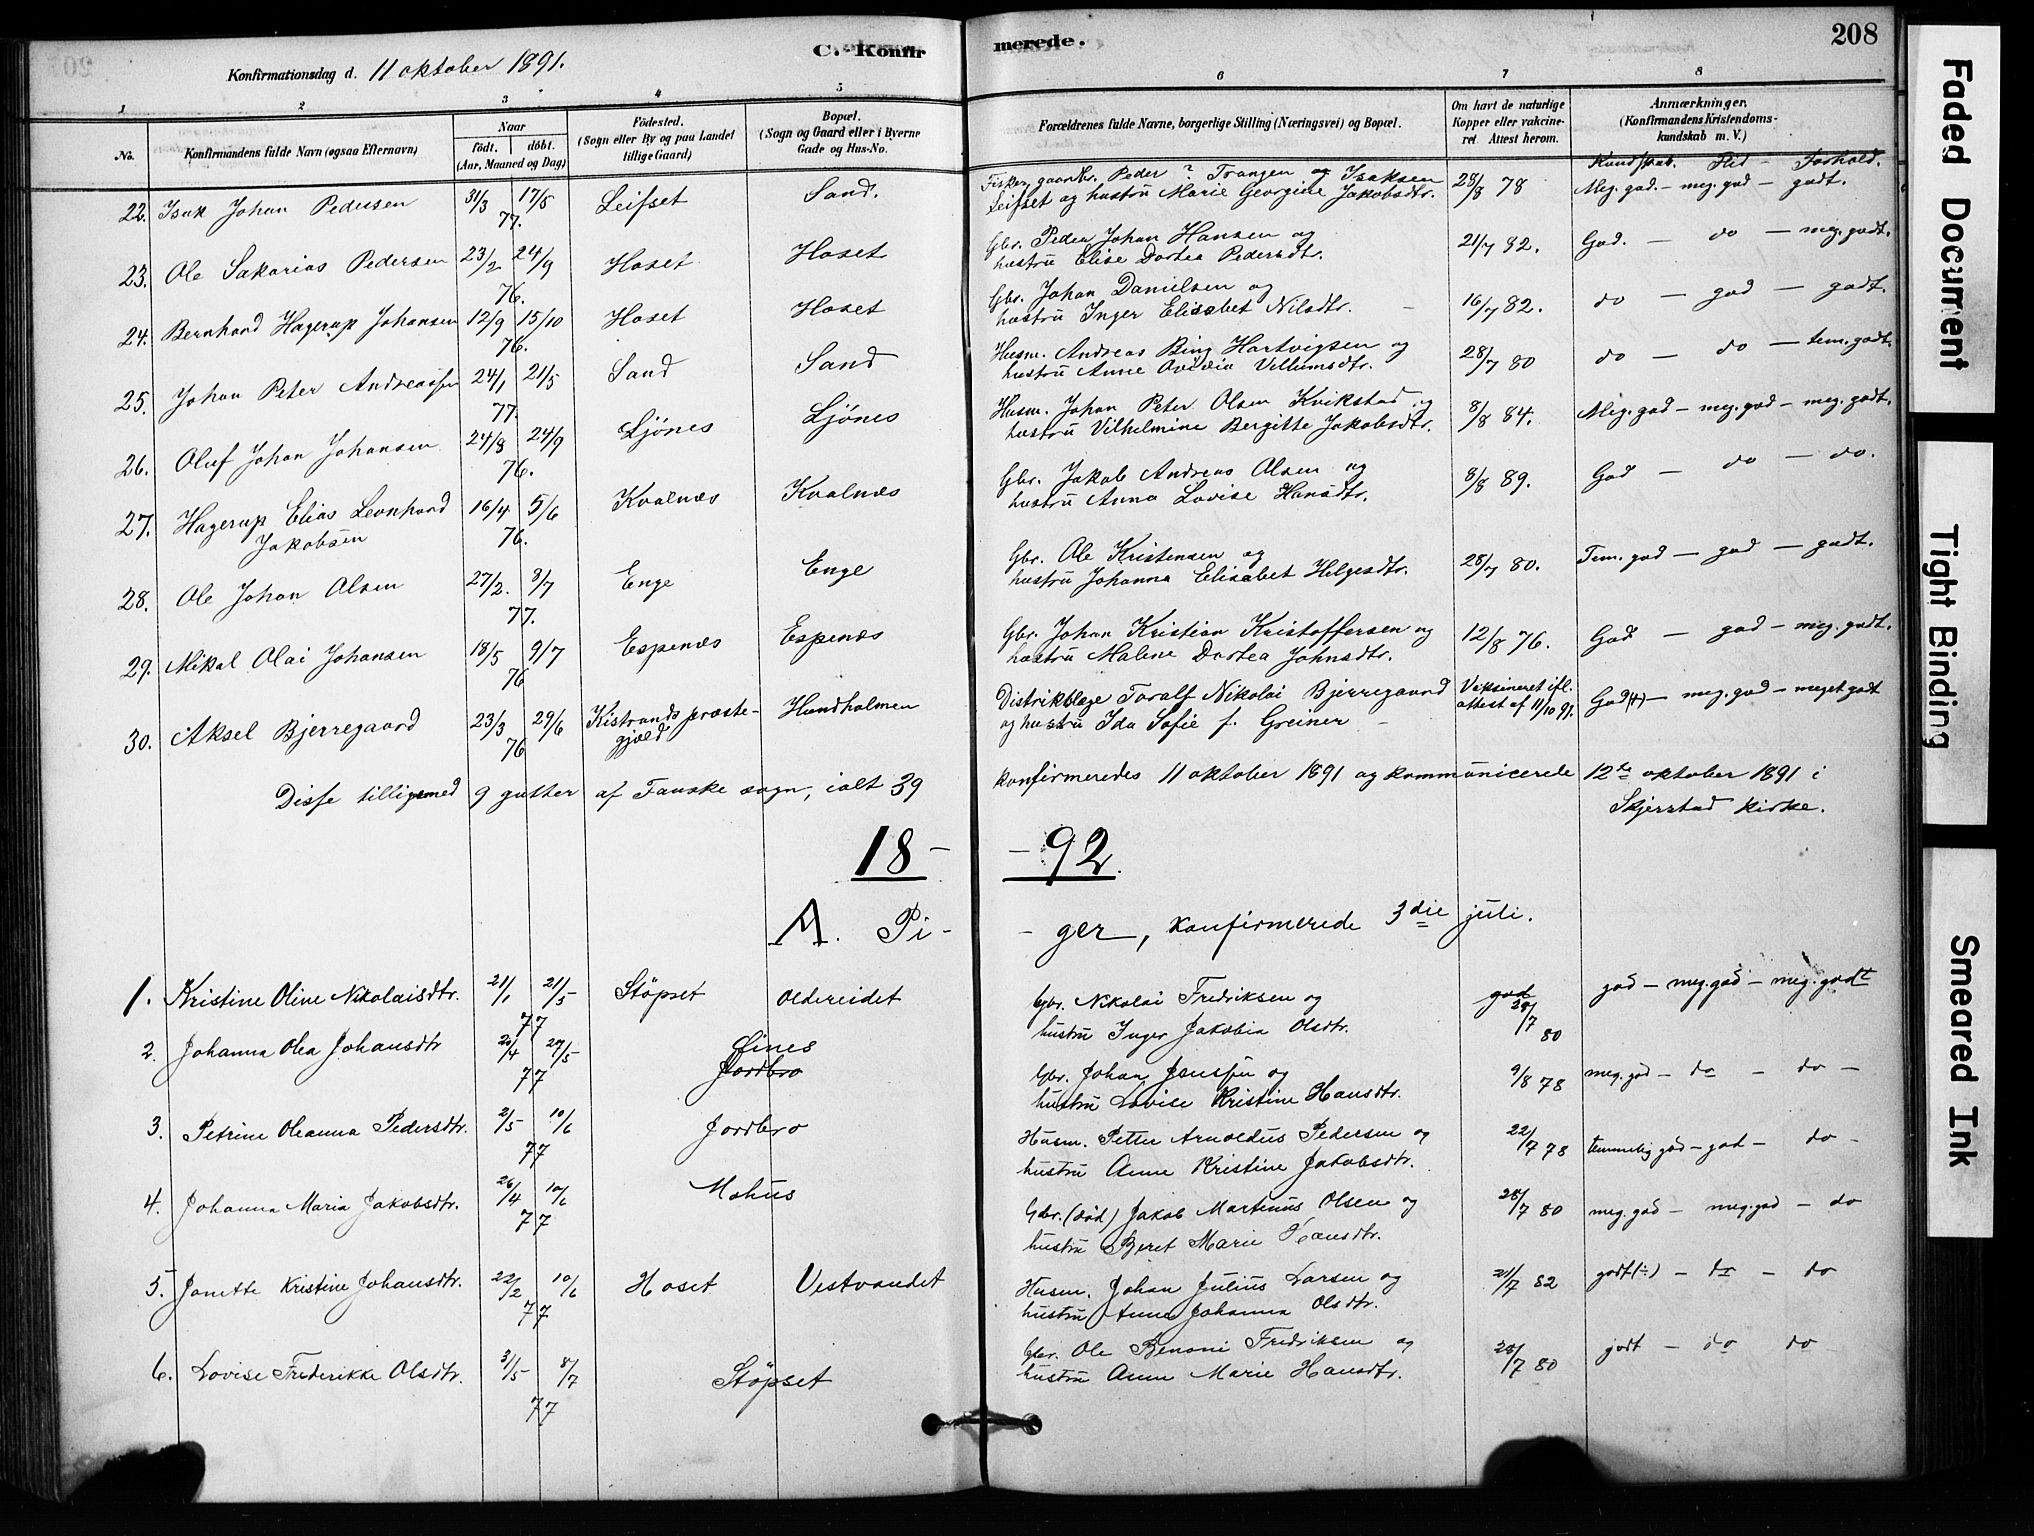 C. Konfirmerede.
208
Konfirmationsdag d. 11 oktober 1891.
1 2 3 4 5 6 7 8
No.
Konfirmandens fulde Navn (ogsaa Efternavn)
Naar
født. døbt.
(Aar, Maaned og Dag)
Fødested.
(Sogn eller By og paa Landet tillige Gaard)
Bopæl.
(Sogn og Gaard eller i Byerne Gade og Hus-No.
Forældrenes fulde Navne, borgerlige Stilling (Næringsvei) og Bopæl.
Om havt de naturlige Kopper eller vakcineret Attest herom.
Anmærkninger.
(Konfirmandens Kristendomskundskab m. V.)
Kundskab. Flid – Forhold.
22. Isak Johan Pedersen 31/3 17/5 77. Leifset Sand. Fisker, Peder ? Trangen og Isaksen
Leifset og hustru Marie Georgine Jakobsdtr. 28/8 78 Meg. god. – meg. god – godt.
23. Ole Sakarias Pedersen 23/2 24/9 76. Hoset Hoset Gbr. Peder Johan Hansen og
hustru Elise Dortea Pedersdtr. 21/7 82. God. – do – meg. godt.
24. Bernhard Hagerup Johansen 12/9 15/10 76. Hoset Hoset Gbr. Johan Danielsen og
hustru Inger Elisabet Nilsdtr. 16/7 82. do – god – godt.
25. Johan Peter Andreassen 24/1 21/5 77. Sand Sand Husm. Andreas Bing Hartvigsen og
hustru Anne Ovidia Villumsdtr. 28/7 80 do – do – tem. godt.
26. Oluf Johan Johansen 24/8 24/9 76. Ljönes Ljönes Husm. Johan Peter Olsen Kvikstad og
hustru Vilhelmine Bergitte Jakobsdtr. 8/8 84. Meg. god – meg. god – meg. godt.
27. Hagerup Elias Leonhard
Jakobsen 16/4 5/6 76. Kvalnæs Kvalnæs Gbr. Jakob Andreas Olsen og
hustru Anna Lovise Hansdtr. 8/8 89. God – do – do.
28. Ole Johan Olsen 27/2. 8/7 77. Enge Enge Gbr. Ole Kristensen og
hustru Johanna Elisabet Helgesdtr. 28/7 80. Tem. god – god – godt.
29. Mikal Olai Johansen 18/5 9/7 76 Espenæs Espenæs Gbr. Johan Kristian Kristoffersen og
hustru Malene Dortea Johnsdtr. 12/8 76. God – god – meg. godt.
30. Aksel Bjerregaard 23/3 29/6 76 Kistrands præste-
gjæld Hundholmen Distriktslæge Toralf Nikolai Bjerregaard
og hustru Ida Sofie f. Greiner – Vaksineret ifl.
attest af 11/10 91. God (+) – meg. god – meget godt
Disse tilligemed 9 gutter af Fauske sogn, ialt 39 konfirmeredes 11 oktober 1891 og kommunicerede 12te oktober 1891 i
Skjerstad kirke.
18 – – 92.
A. Pi- -ger, konfirmerede 3die juli.
1. Kristine Oline Nikolaisdtr. 21/1 21/5 77 Stöpset Oldereidet Gbr. Nikolai Fredriksen og
hustru Inger Jakobia Olsdtr. god 28/7 80 god – meg. god – meg. godt
2. Johanna Olea Johansdtr 20/4 27/5 77 Lines
Jordbro Gbr. Johan Jenssen og
hustru Lovise Kristine Hansdtr. 9/8 78 meg. god – do – do –
3. Petrine Oleanna Pedersdtr. 2/5 10/6 77 Jordbro Husm. Petter Arnoldus Pedersen og
hustru Anne Kristine Jakobsdtr. 22/7 78 temmelig god – god – do –
4. Johanna Maria Jakobsdtr. 26/4 10/6 77 Mohus Gbr. (död) Jakob Martinus Olsen og
hustru Beret Marie Hansdtr. 28/7 80 meg. god – meg. god – do
5. Janette Kristine Johansdtr. 22/2 10/6 77 Hoset Vestvandet Husm. Johan Julius Larsen og
hustru Anne Johanna Olsdtr. 21/7 82 godt (÷) – do – do
6. Lovise Frederikke Olsdtr. 3/5 8/7 77 Stöpset Gbr. Ole Benoni Fredriksen og
hustru Anne Marie Hansdtr. 28/7 80 godt – do do
Faded Document
Tight Binding
Smeared Ink